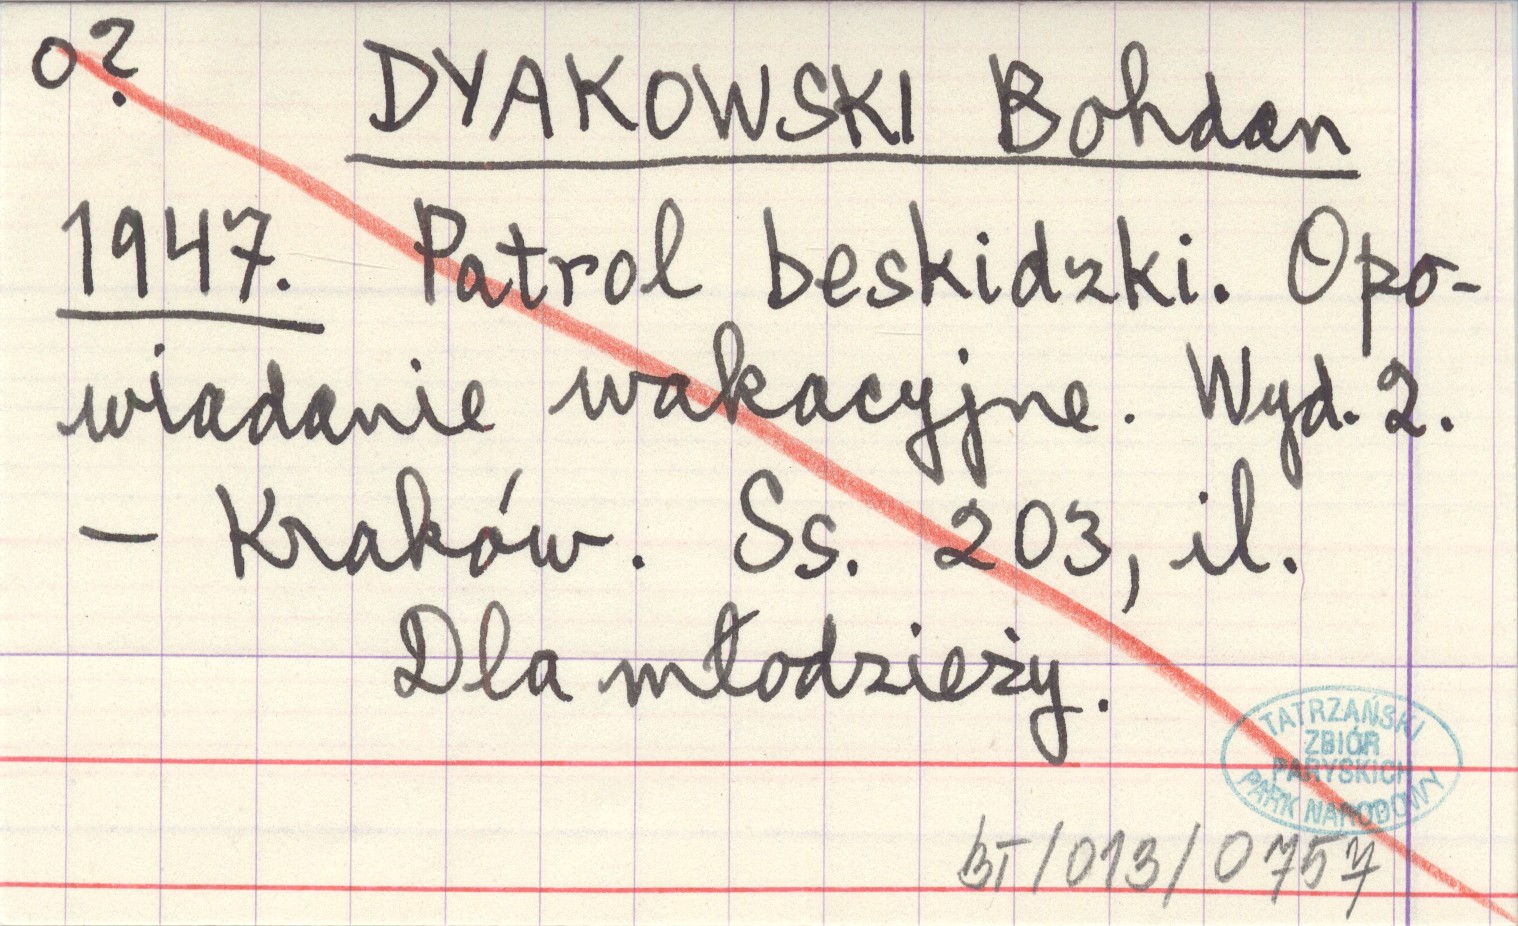 o?
DYAKOWSKI Bohdan
1947. Patrol beskidzki. Opo-
wiadanie wakacyjne. Wyd. 2.
— Kraków. Ss. 203, il.
Dla młodzieży.
TATRZAŃSKI
ZBIÓR
PARYSKICH
PARK NARODOWY
BT/013/0757